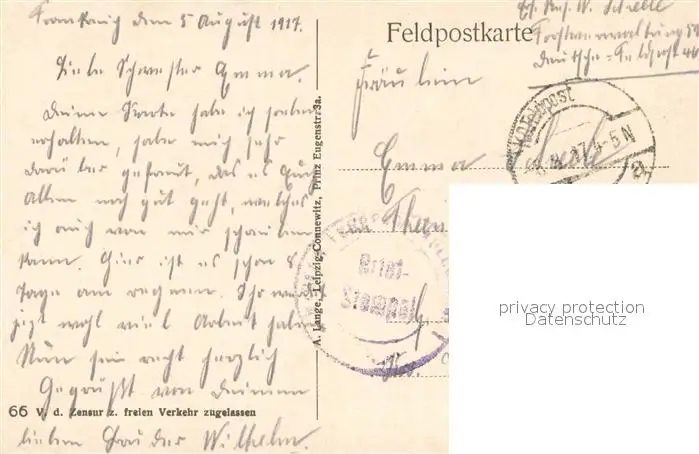 Frankreich den 5 August 1917.
Liebe Schwester Emma.
Deine Karte habe ich soeben
erhalten, habe mich sehr
darüber gefreut, das es Euch
Allen noch gut geht, welches
ich auch von mir schreiben
kann. Hier ist es schon 8
Tage am regnen. Ihr werdet
jezt wohl viel Arbeit haben
Nun sein recht herzlich
Gegrüßt von Deinem
lieben Bruder Wilhelm.
66 V. d. Zensur z. freien Verkehr zugelassen
A. Lange, Leipzig-Connewitz, Prinz Eugenstr. 3a.
Feldpostkarte
W. Scheele
Deutsche Feldpost
Fräulein
Emma
in
Feldpost
8.17 4-5 N
a
Brief-
Stempel
privacy protection
Datenschutz